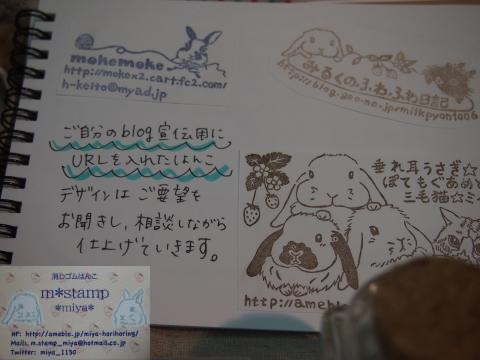 mokemoke
http://mokex2.cart.fc2.com/
h-keito@myad.jp
みるくのふわふわ日記
http://blog.goo.ne.jp/milkpyon1006
ご自分のblog宣伝用に
URLを入れたはんこ
デザインは ご要望を
お聞きし、相談しながら
仕上げていきます。
垂れ耳うさぎ☆
ぽてもぐあめ
三毛猫☆ミ
http://ameb
消しゴムはんこ
m*stamp
*miya*
HP: http://ameblo.jp/miya-horihoring/
Mail: m.stamp_miya@hotmail.co.jp
Twitter: miya_1130